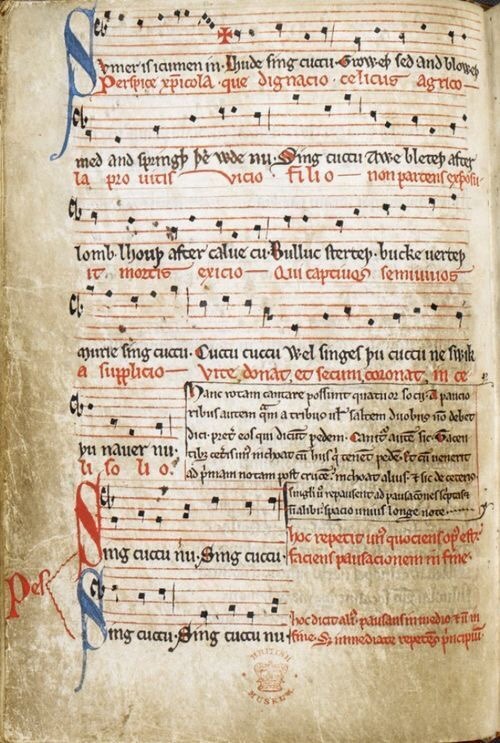 Sumer is icumen in. Lhude sing cuccu. Groweþ sed and bloweþ
Perspice xp̄icola. que dignacio. celicus agrico
med and springþ þe wde nu. Sing cuccu Awe bleteþ after
la pro uitis vicio filio non parcens exposu
lomb. lhouþ after calue cu. Bulluc sterteþ. bucke uerteþ
it mortis exicio Qui captiuos semiuiuos
murie sing cuccu. Cuccu cuccu Wel singes þu cuccu ne swik
a supplicio Vite donat et secum coronat in ce
þu nauer nu.
li solio.
Hanc rotam cantare possunt quatuor socii. A paucio
ribus autem a tribus uel saltem duobus non debet
dici. preter eos qui dicunt pedem. Canitur autem sic. Tacen
tibus ceteris unus inchoat cum hiis qui tenent pedem. Et cum uenerit
ad primam notam post crucem. inchoat alius. et sic de ceteris
singuli repausent ad pausaciones scriptas et
non alibi. spacio unius longe note.
Pes
Sing cuccu nu. Sing cuccu.
hoc repetit unus quociens opus est.
faciens pausacionem in fine.
Sing cuccu. Sing cuccu nu
hoc dicit alius. pausans in medio et non in
fine. Sed immediate repetens principium.
BRITISH
MUSEUM